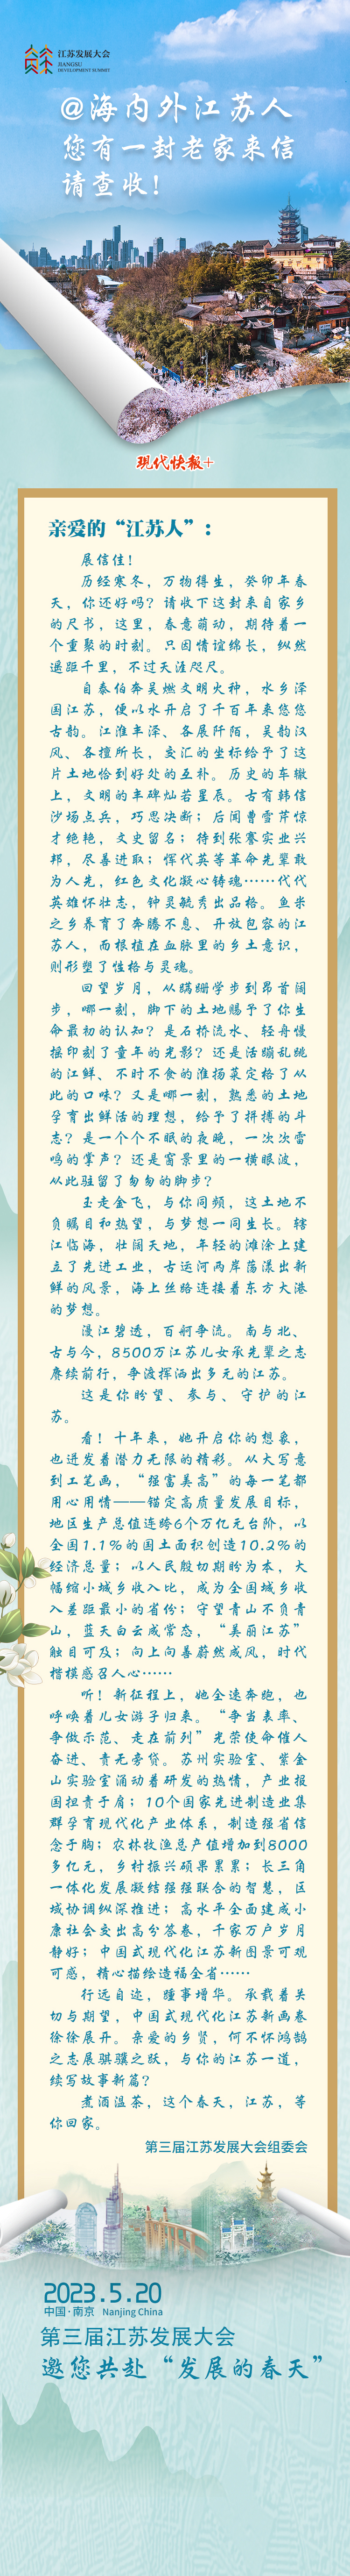 江苏发展大会
JIANGSU
DEVELOPMENT SUMMIT
@海内外江苏人
您有一封老家来信
请查收！
现代快报+
亲爱的“江苏人”：
展信佳！
历经寒冬，万物得生，癸卯年春
天，你还好吗？请收下这封来自家乡
的尺书，这里，春意萌动，期待着一
个重聚的时刻。只因情谊绵长，纵然
遥距千里，不过天涯咫尺。
自泰伯奔吴燃文明火种，水乡泽
国江苏，便以水开启了千百年来悠悠
古韵。江淮丰泽、各展阡陌，吴韵汉
风、各擅所长，交汇的坐标给予了这
片土地恰到好处的互补。历史的车辙
上，文明的丰碑灿若星辰。古有韩信
沙场点兵，巧思决断；后闻曹雪芹惊
才绝艳，文史留名；待到张謇实业兴
邦，尽善进取；恽代英等革命先辈敢
为人先，红色文化凝心铸魂……代代
英雄怀壮志，钟灵毓秀出品格。鱼米
之乡养育了奔腾不息、开放包容的江
苏人，而根植在血脉里的乡土意识，
则形塑了性格与灵魂。
回望岁月，从蹒跚学步到昂首阔
步，哪一刻，脚下的土地赐予了你生
命最初的认知？是石桥流水、轻舟慢
摇印刻了童年的光影？还是活蹦乱跳
的江鲜、不时不食的淮扬菜定格了从
此的口味？又是哪一刻，熟悉的土地
孕育出鲜活的理想，给予了拼搏的斗
志？是一个个不眠的夜晚，一次次雷
鸣的掌声？还是窗景里的一横眼波，
从此驻留了匆匆的脚步？
玉走金飞，与你同频，这土地不
负瞩目和热望，与梦想一同生长。辖
江临海，壮阔天地，年轻的滩涂上建
立了先进工业，古运河两岸荡漾出新
鲜的风景，海上丝路连接着东方大港
的梦想。
漫江碧透，百舸争流。南与北、
古与今，8500万江苏儿女承先辈之志
赓续前行，争渡挥洒出多元的江苏。
这是你盼望、参与、守护的江
苏。
看！十年来，她开启你的想象，
也迸发着潜力无限的精彩。从大写意
到工笔画，“强富美高”的每一笔都
用心用情——锚定高质量发展目标，
地区生产总值连跨6个万亿元台阶，以
全国1.1%的国土面积创造10.2%的
经济总量；以人民殷切期盼为本，大
幅缩小城乡收入比，成为全国城乡收
入差距最小的省份；守望青山不负青
山，蓝天白云成常态，“美丽江苏”
触目可及；向上向善蔚然成风，时代
楷模感召人心……
听！新征程上，她全速奔跑，也
呼唤着儿女游子归来。“争当表率、
争做示范、走在前列”光荣使命催人
奋进、责无旁贷。苏州实验室、紫金
山实验室涌动着研发的热情，产业报
国担责于肩；10个国家先进制造业集
群孕育现代化产业体系，制造强省信
念于胸；农林牧渔总产值增加到8000
多亿元，乡村振兴硕果累累；长三角
一体化发展凝结强强联合的智慧，区
域协调纵深推进；高水平全面建成小
康社会交出高分答卷，千家万户岁月
静好；中国式现代化江苏新图景可观
可感，精心描绘造福全省……
行远自迩，踵事增华。承载着关
切与期望，中国式现代化江苏新画卷
徐徐展开。亲爱的乡贤，何不怀鸿鹄
之志展骐骥之跃，与你的江苏一道，
续写故事新篇？
煮酒温茶，这个春天，江苏，等
你回家。
第三届江苏发展大会组委会
2023.5.20
中国·南京 Nanjing China
第三届江苏发展大会
邀您共赴“发展的春天”